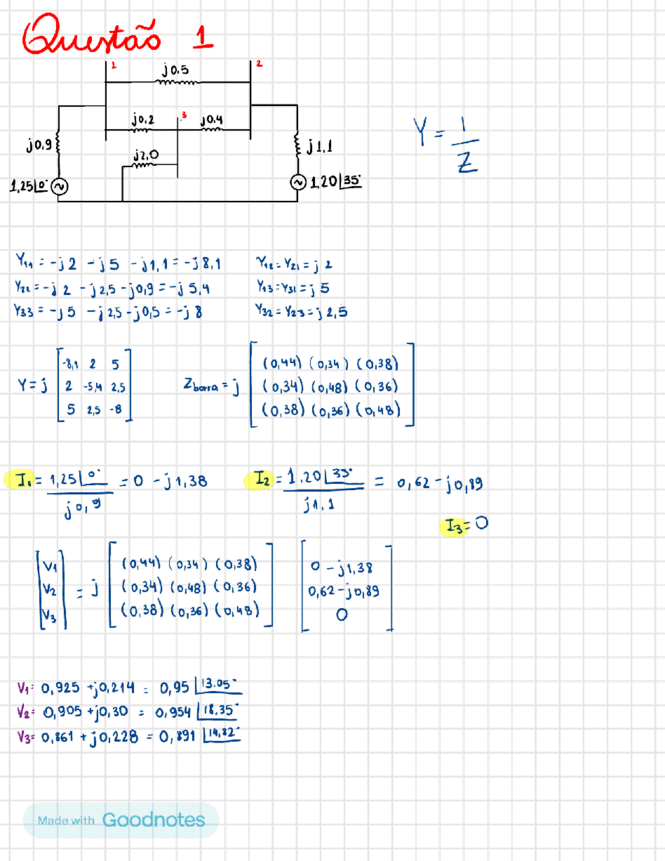 Questão 1
1 2
j0.5
3
j0.2 j0.4
j0,9 j1,1
j2,0
1,25∠0° 1,20∠35°
Y = 1/Z
Y₁₁ = -j2 -j5 -j1,1 = -j8,1 Y₁₂ = Y₂₁ = j2
Y₂₂ = -j2 -j2,5 -j0,9 = -j5,4 Y₁₃ = Y₃₁ = j5
Y₃₃ = -j5 -j2,5 -j0,5 = -j8 Y₃₂ = Y₂₃ = j2,5
-8,1 2 5 (0,44) (0,34) (0,38)
Y = j 2 -5,4 2,5 Zbarra = j (0,34) (0,48) (0,36)
5 2,5 -8 (0,38) (0,36) (0,48)
I₁ = 1,25∠0° / j0,9 = 0 - j1,38 I₂ = 1.20∠35° / j1,1 = 0,62 - j0,89
I₃ = 0
V1 (0,44) (0,34) (0,38) 0 - j1,38
V2 = j (0,34) (0,48) (0,36) 0,62 - j0,89
V3 (0,38) (0,36) (0,48) 0
V1 = 0,925 + j0,214 = 0,95∠13.05°
V2 = 0,905 + j0,30 = 0,954∠18.35°
V3 = 0,861 + j0,228 = 0,891∠14,82°
Made with Goodnotes